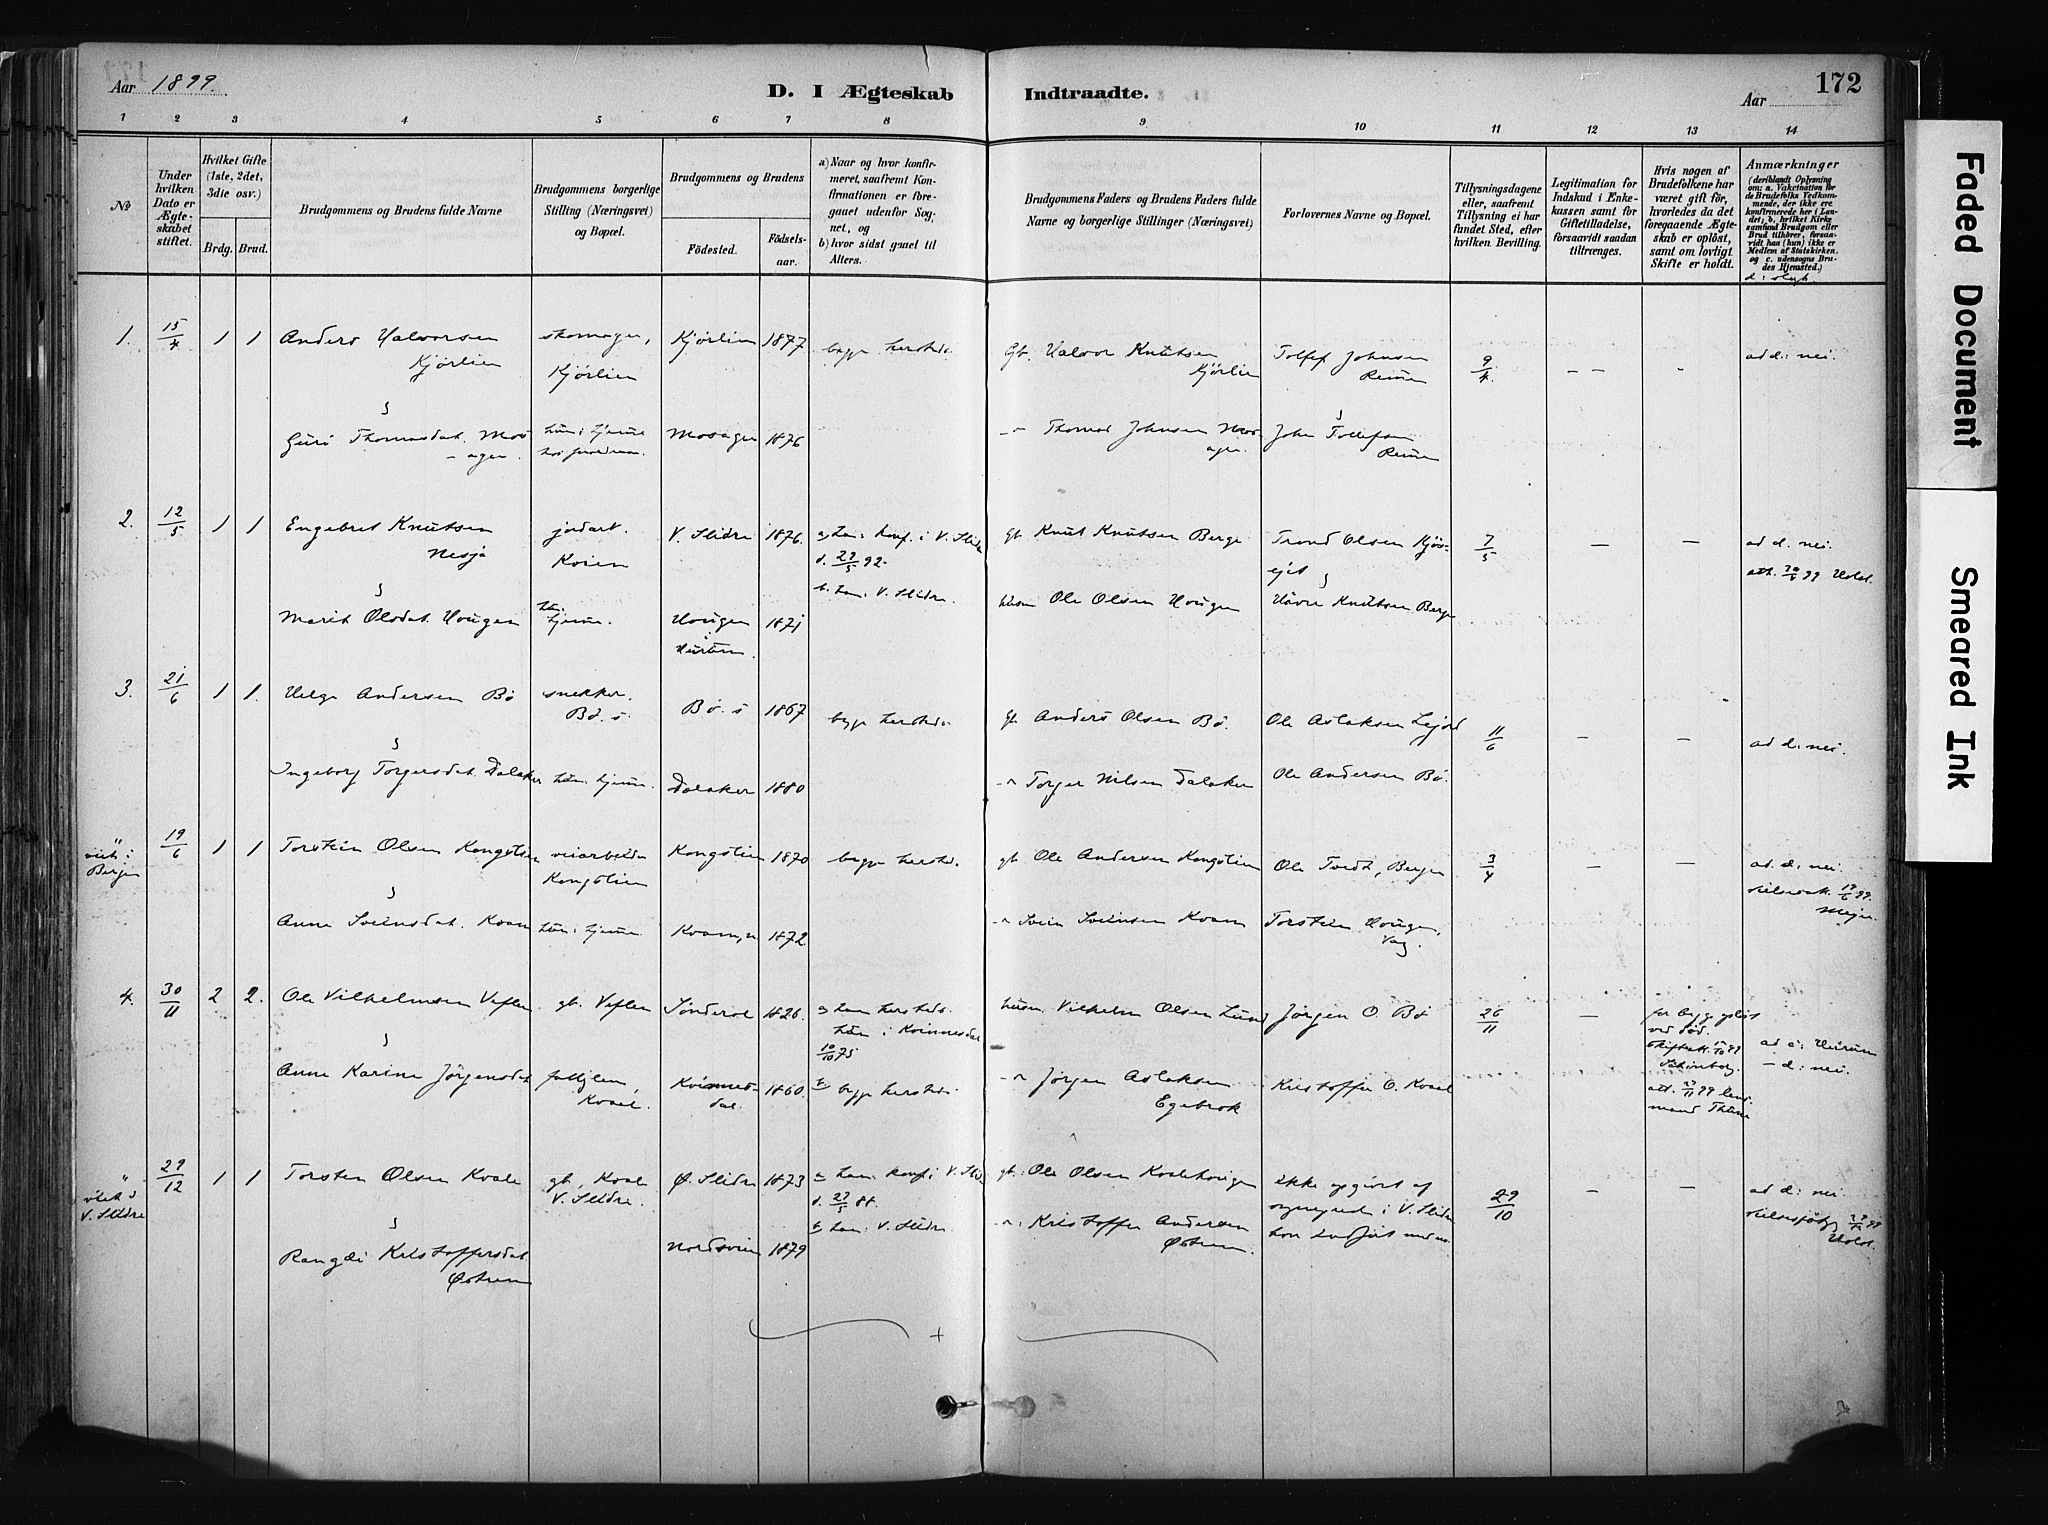 Aar 1899.
D. I Ægteskab Indtraadte.
172
Aar
1 2 3 4 5 6 7 8 9 10 11 12 13 14
No
Under hvilken Dato er Ægteskabet stiftet.
Hvilket Gifte (1ste, 2det, 3die osv.)
Brdg. Brud.
Brudgommens og Brudens fulde Navne
Brudgommens borgerlige Stilling (Næringsvei) og Bopæl.
Brudgommens og Brudens
Födested.
Födselsaar.
a) Naar og hvor konfirmeret, saafremt Konfirmationen er foregaaet udenfor Sognet, og
b) hvor sidst gaaet til Alters.
Brudgommens Faders og Brudens Faders fulde Navne og borgerlige Stillinger (Næringsvei)
Forlovernes Navne og Bopæl.
Tillysningsdagene eller, saafremt Tillysning ei har fundet Sted, efter hvilken Bevilling.
Legitimation for Indskud i Enkekassen samt for Giftetilladelse, forsaavidt saadan tiltrænges.
Hvis nogen af Brudefolkene har været gift før, hvorledes da det foregaaende Ægteskab er oplöst, samt om lovligt Skifte er holdt.
Anmærkninger (deriblandt Oplysning om: a. Vakcination for de Brudefolks Vedkommende, der ikke ere konfirmerede her i Landet; b. hvilket Kirkesamfund Brudgom eller Brud tilhörer, forsaavidt han (hun) ikke er Medlem af Statskirken, og c. udensogns Brudes Hjemsted.)
d: slegt.
1. 15/4 1 1 Anders Halvorsen Kjørlien
skomager, Kjørlien
Kjørlien 1877 begge hersteds
Gb. Halvor Knutsen Kjørlien
Tollef Johnsen Reinen
9/4 – – - ad d: nei.
Guri Thomasdat. Mosager
Mosager 1876
-"- Thomas Johnsen Mosager
John Tollefsen Reinen
2. 12/5 1 1 Engebret Knutsen Nesja
jordarb.
V. Slidre 1876.
a) han: konf. i V. Slidre d. 29/5 92.
b. han: V. Slidre.
gb. Knut Knutsen Berge
Trond Olsen
7/5 – – ad d. nei.
Marit Olsdat. Hougen
hun: hjemme.
Hougen i Hurum 1871
husm Ole Olsen Hougen
Håvre Knutsen Berge
3. 21/6 1 1. Helge Andersen Bø
snekker. Bø. s
Bø. s 1867 begge hersteds
gb. Anders Olsen Bø.
Ole Aslaksen Lejord
11/6 – – ad d: nei.
Ingeborg Torgersdat. Dalaker
hun: hjemme.
Dalaker 1880
-"- Torger Nilsen Dalaker
Ole Andersen Bø.
" viet i Bergen
19/6 1 1 Torstein Olsen Kongslien
veiarbeider Kongslien
Kongslien 1870 begge herstds.
gb. Ole Andersen Kongslien
Ole Tvedt, Bergen
3/4 – – ad. d: nei.
Anne Sveinsdat. Kvam
hun: hjemme.
Kvam, n 1872
-"- Svein Sveinsen Kvam
Torstein Hougen, Vang.
4. 30/11 2 2. Ole Vilhelmsen Veflen
gb. Veflen
1826.
a) han herstds. hun i Kvinnesdal 10/10 75
husm. Vilhelm Olsen Lund
Jørgen O. Bø
26/11 –
for begge opløst ved død.
ad c: Hurum
– d: nei.
Anne Karine Jørgensdat
Kvaal.
Kvinnesdal. 1860.
b) begge herstds.
-"- Jørgen Aslaksen Egebrok
Kristoffer O. Kvaal
" viet i V. Slidre
29/12 1 1 Torsten Olsen Kvale
gb. Kvale V. Slidre.
Ø. Slidre 1873
a) han: konf. i V. Slidre d. 27/5 88.
b) han: V. Slidre.
gb: Ole Olsen Kvalehougen
ikke opgivet af sogneprest i V. Slidre
29/10 – – ad d: nei.
Rangdi Kristoffersdat Østrem
Nordsvein 1879
-"- Kristoffer Andersen Østrem.
Faded Document
Smeared Ink